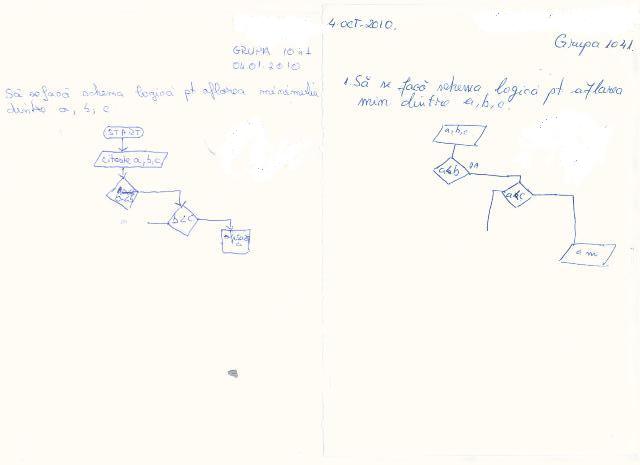 GRUPA 1041
04.01.2010
Să se facă schema logică pt aflarea minimului
dintre a, b, c
START
citeste a,b,c
b<c
4 OCT. 2010.
Grupa 1041.
1. Să se facă schema logică pt aflarea
min dintre a,b,c.
a,b,c
a<b
DA
a<c
a m